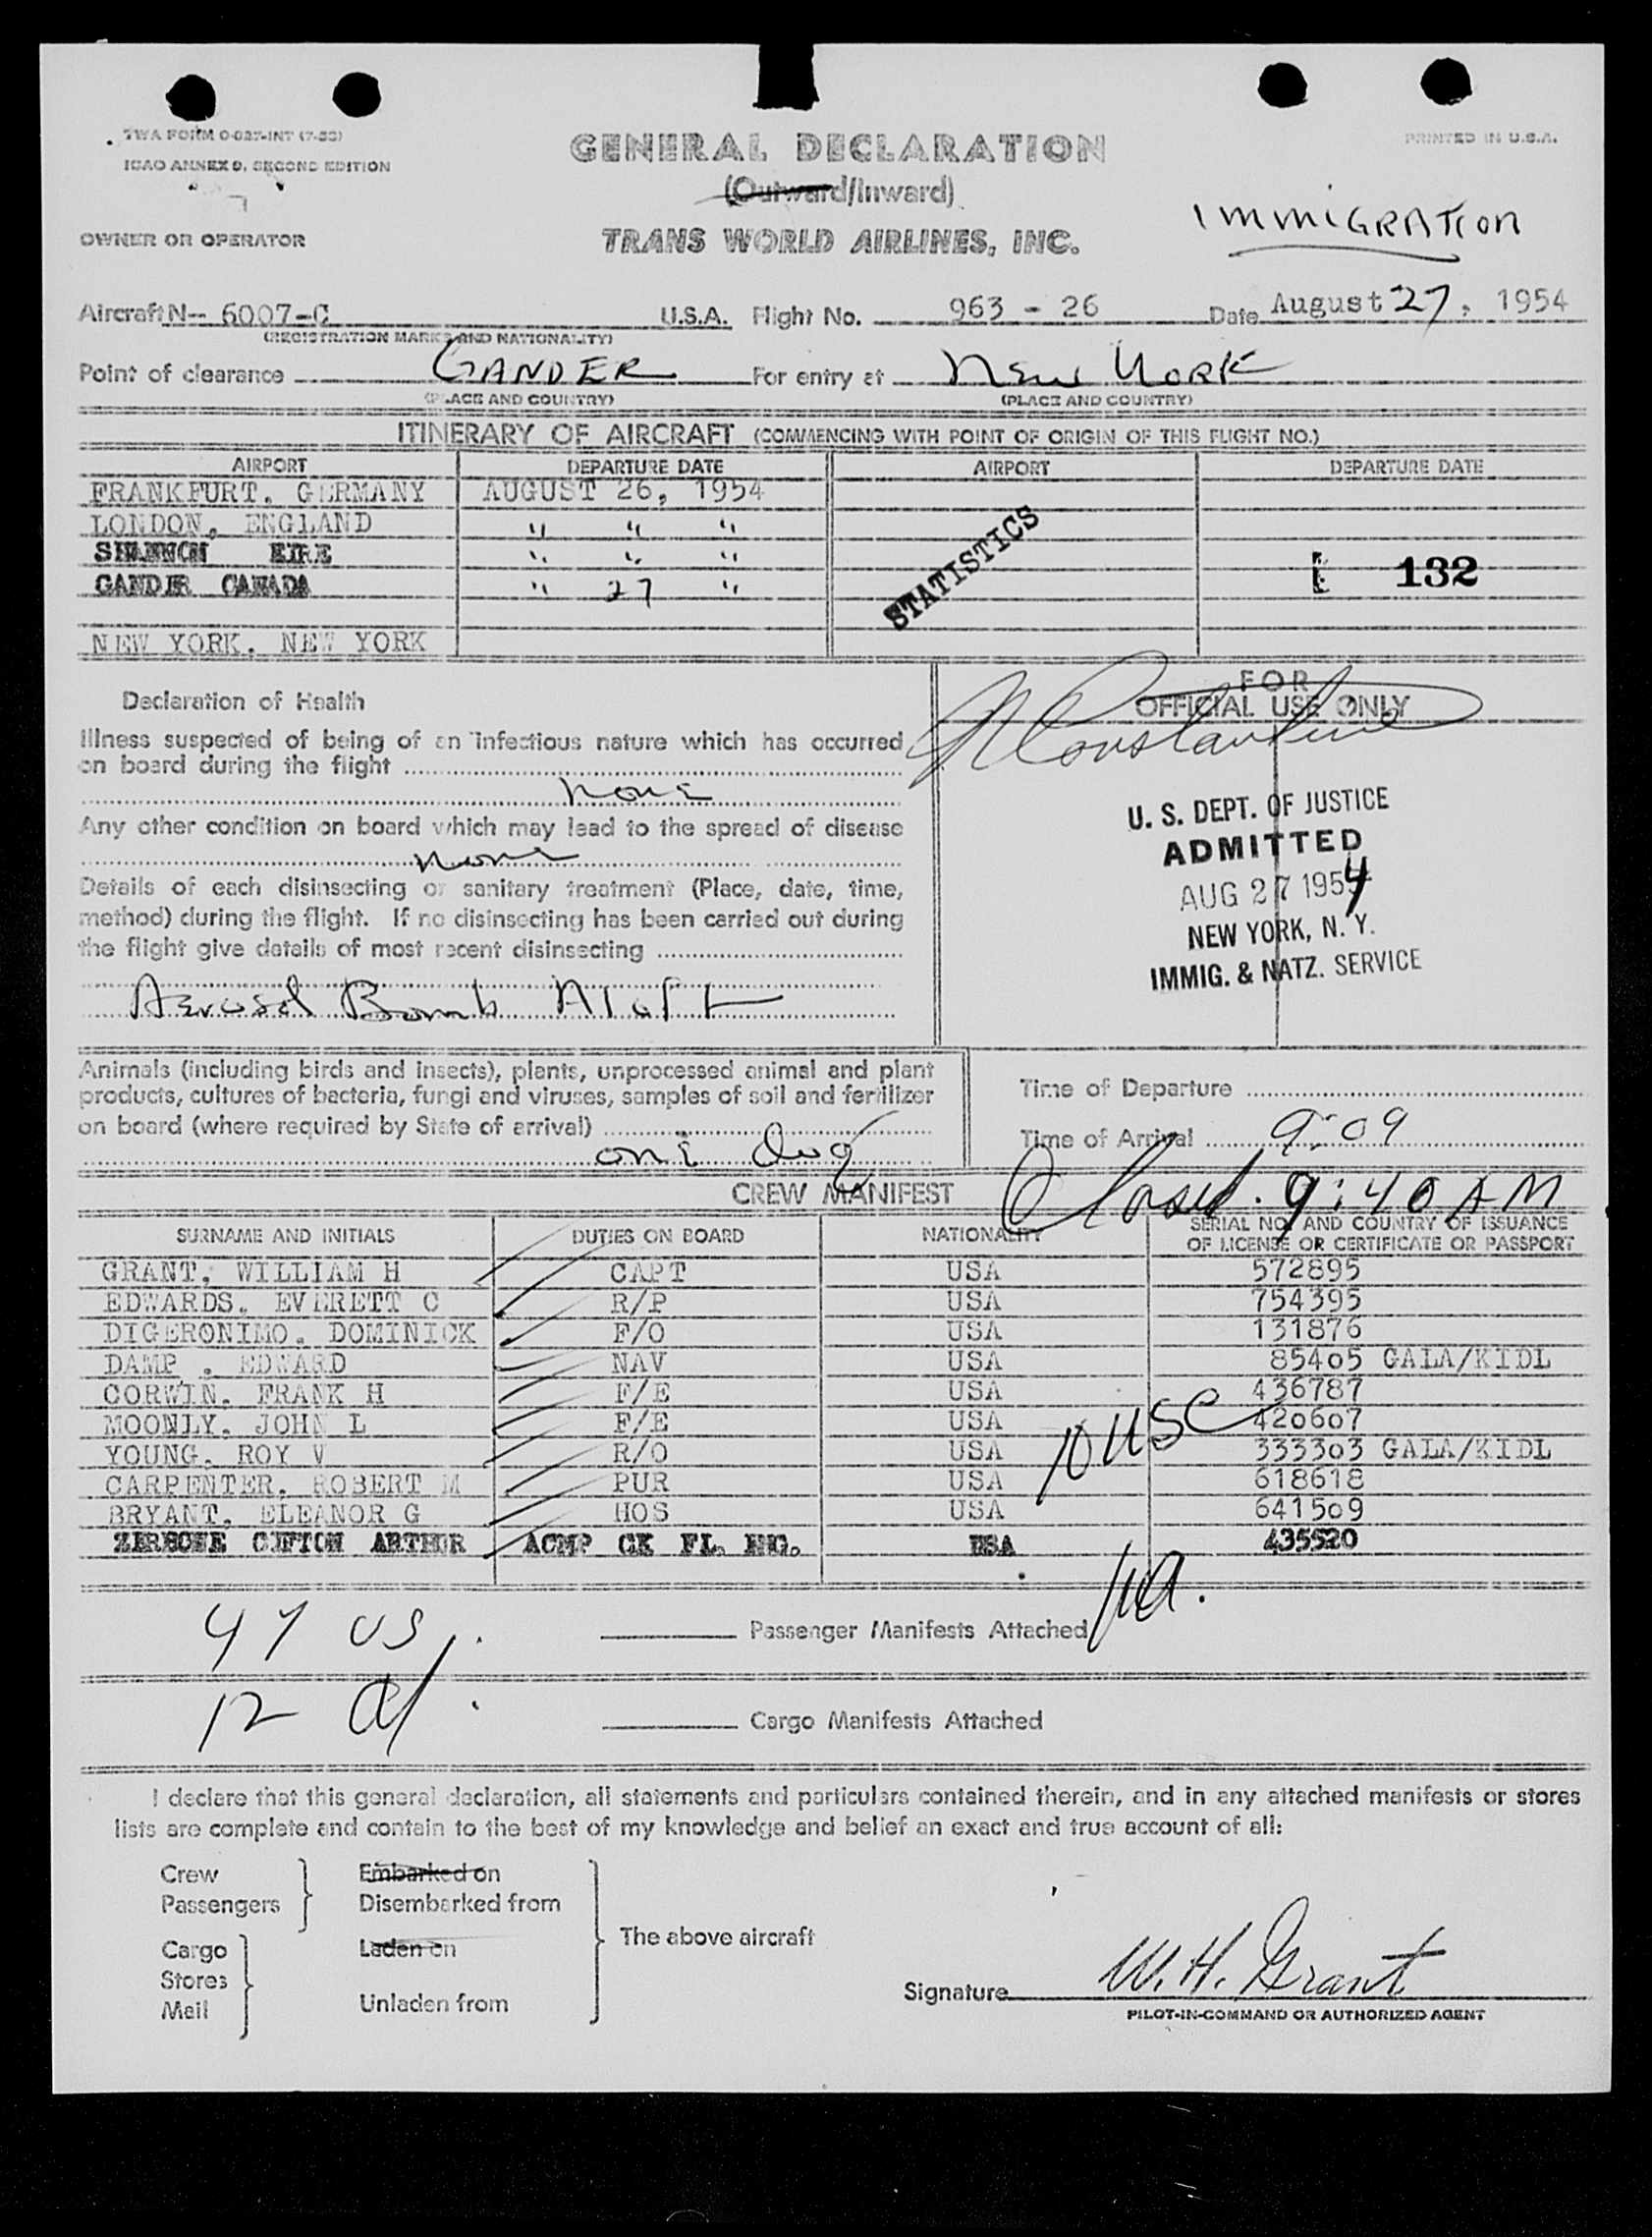 TWA FORM O-027-INT (7-53)
ICAO ANNEX 9, SECOND EDITION
GENERAL DECLARATION
PRINTED IN U.S.A.
(Outward/Inward)
IMMIGRATION
OWNER OR OPERATOR
TRANS WORLD AIRLINES, INC.
Aircraft N-- 6007-C U.S.A. Flight No. 963 - 26 Date August 27, 1954
(REGISTRATION MARKS AND NATIONALITY)
Point of clearance GANDER For entry at New York
(PLACE AND COUNTRY) (PLACE AND COUNTRY)
ITINERARY OF AIRCRAFT (COMMENCING WITH POINT OF ORIGIN OF THIS FLIGHT NO.)
AIRPORT DEPARTURE DATE AIRPORT DEPARTURE DATE
FRANKFURT, GERMANY AUGUST 26, 1954
LONDON, ENGLAND " " "
SHANNON EIRE " " "
GANDER CANADA " 27 "
STATISTICS
132
NEW YORK, NEW YORK
FOR
OFFICIAL USE ONLY
Constantine
Declaration of Health
Illness suspected of being of an infectious nature which has occurred
on board during the flight
None
Any other condition on board which may lead to the spread of disease
None
Details of each disinsecting or sanitary treatment (Place, date, time,
method) during the flight. If no disinsecting has been carried out during
the flight give details of most recent disinsecting
Aerosol Bomb Aloft
U. S. DEPT. OF JUSTICE
ADMITTED
AUG 27 1954
NEW YORK, N. Y.
IMMIG. & NATZ. SERVICE
Animals (including birds and insects), plants, unprocessed animal and plant
products, cultures of bacteria, fungi and viruses, samples of soil and fertilizer
on board (where required by State of arrival)
one dog
Time of Departure
Time of Arrival 9:09
Closed. 9:40 AM
CREW MANIFEST
SURNAME AND INITIALS DUTIES ON BOARD NATIONALITY SERIAL NO. AND COUNTRY OF ISSUANCE
OF LICENSE OR CERTIFICATE OR PASSPORT
GRANT, WILLIAM H CAPT USA 572895
EDWARDS, EVERETT C R/P USA 754395
DIGERONIMO, DOMINICK F/O USA 131876
DAMP , EDWARD NAV USA 85405 GALA/KIDL
CORWIN, FRANK H F/E USA 436787
MOONLY, JOHN L F/E USA 420607
YOUNG, ROY V R/O USA 333303 GALA/KIDL
CARPENTER, ROBERT M PUR USA 618618
BRYANT, ELEANOR G HOS USA 641509
CLIFTON ARTHUR ACMP CK FL. ENG. USA 435520
10 USC
47 US
Passenger Manifests Attached
12 al
Cargo Manifests Attached
I declare that this general declaration, all statements and particulars contained therein, and in any attached manifests or stores
lists are complete and contain to the best of my knowledge and belief an exact and true account of all:
Crew
Passengers
Embarked on
Disembarked from
Cargo
Stores
Mail
Laden on
Unladen from
The above aircraft
Signature W. H. Grant
PILOT-IN-COMMAND OR AUTHORIZED AGENT